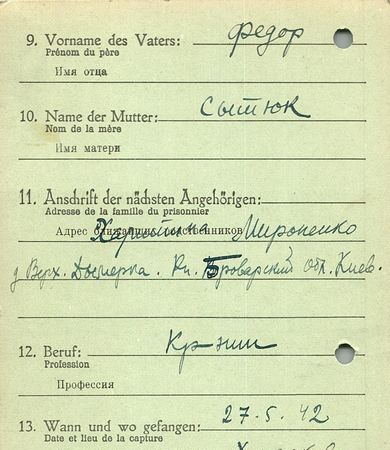 9. Vorname des Vaters: Федор
Prénom du père
Имя отца
10. Name der Mutter: Сытюк
Nom de la mère
Имя матери
11. Anschrift der nächsten Angehörigen:
Adresse de la famille du prisonnier
Адрес ближайших родственников Мироненко
д Верх. Дымерка. Рн. Броварский Обл. Киев.
12. Beruf: Кр-нин
Profession
Профессия
13. Wann und wo gefangen: 27-5-42
Date et lieu de la capture